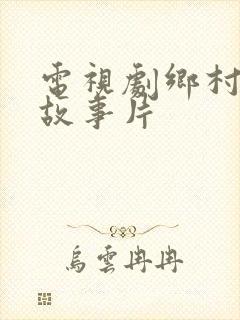 電視劇鄉村
故事片
烏雲冉冉